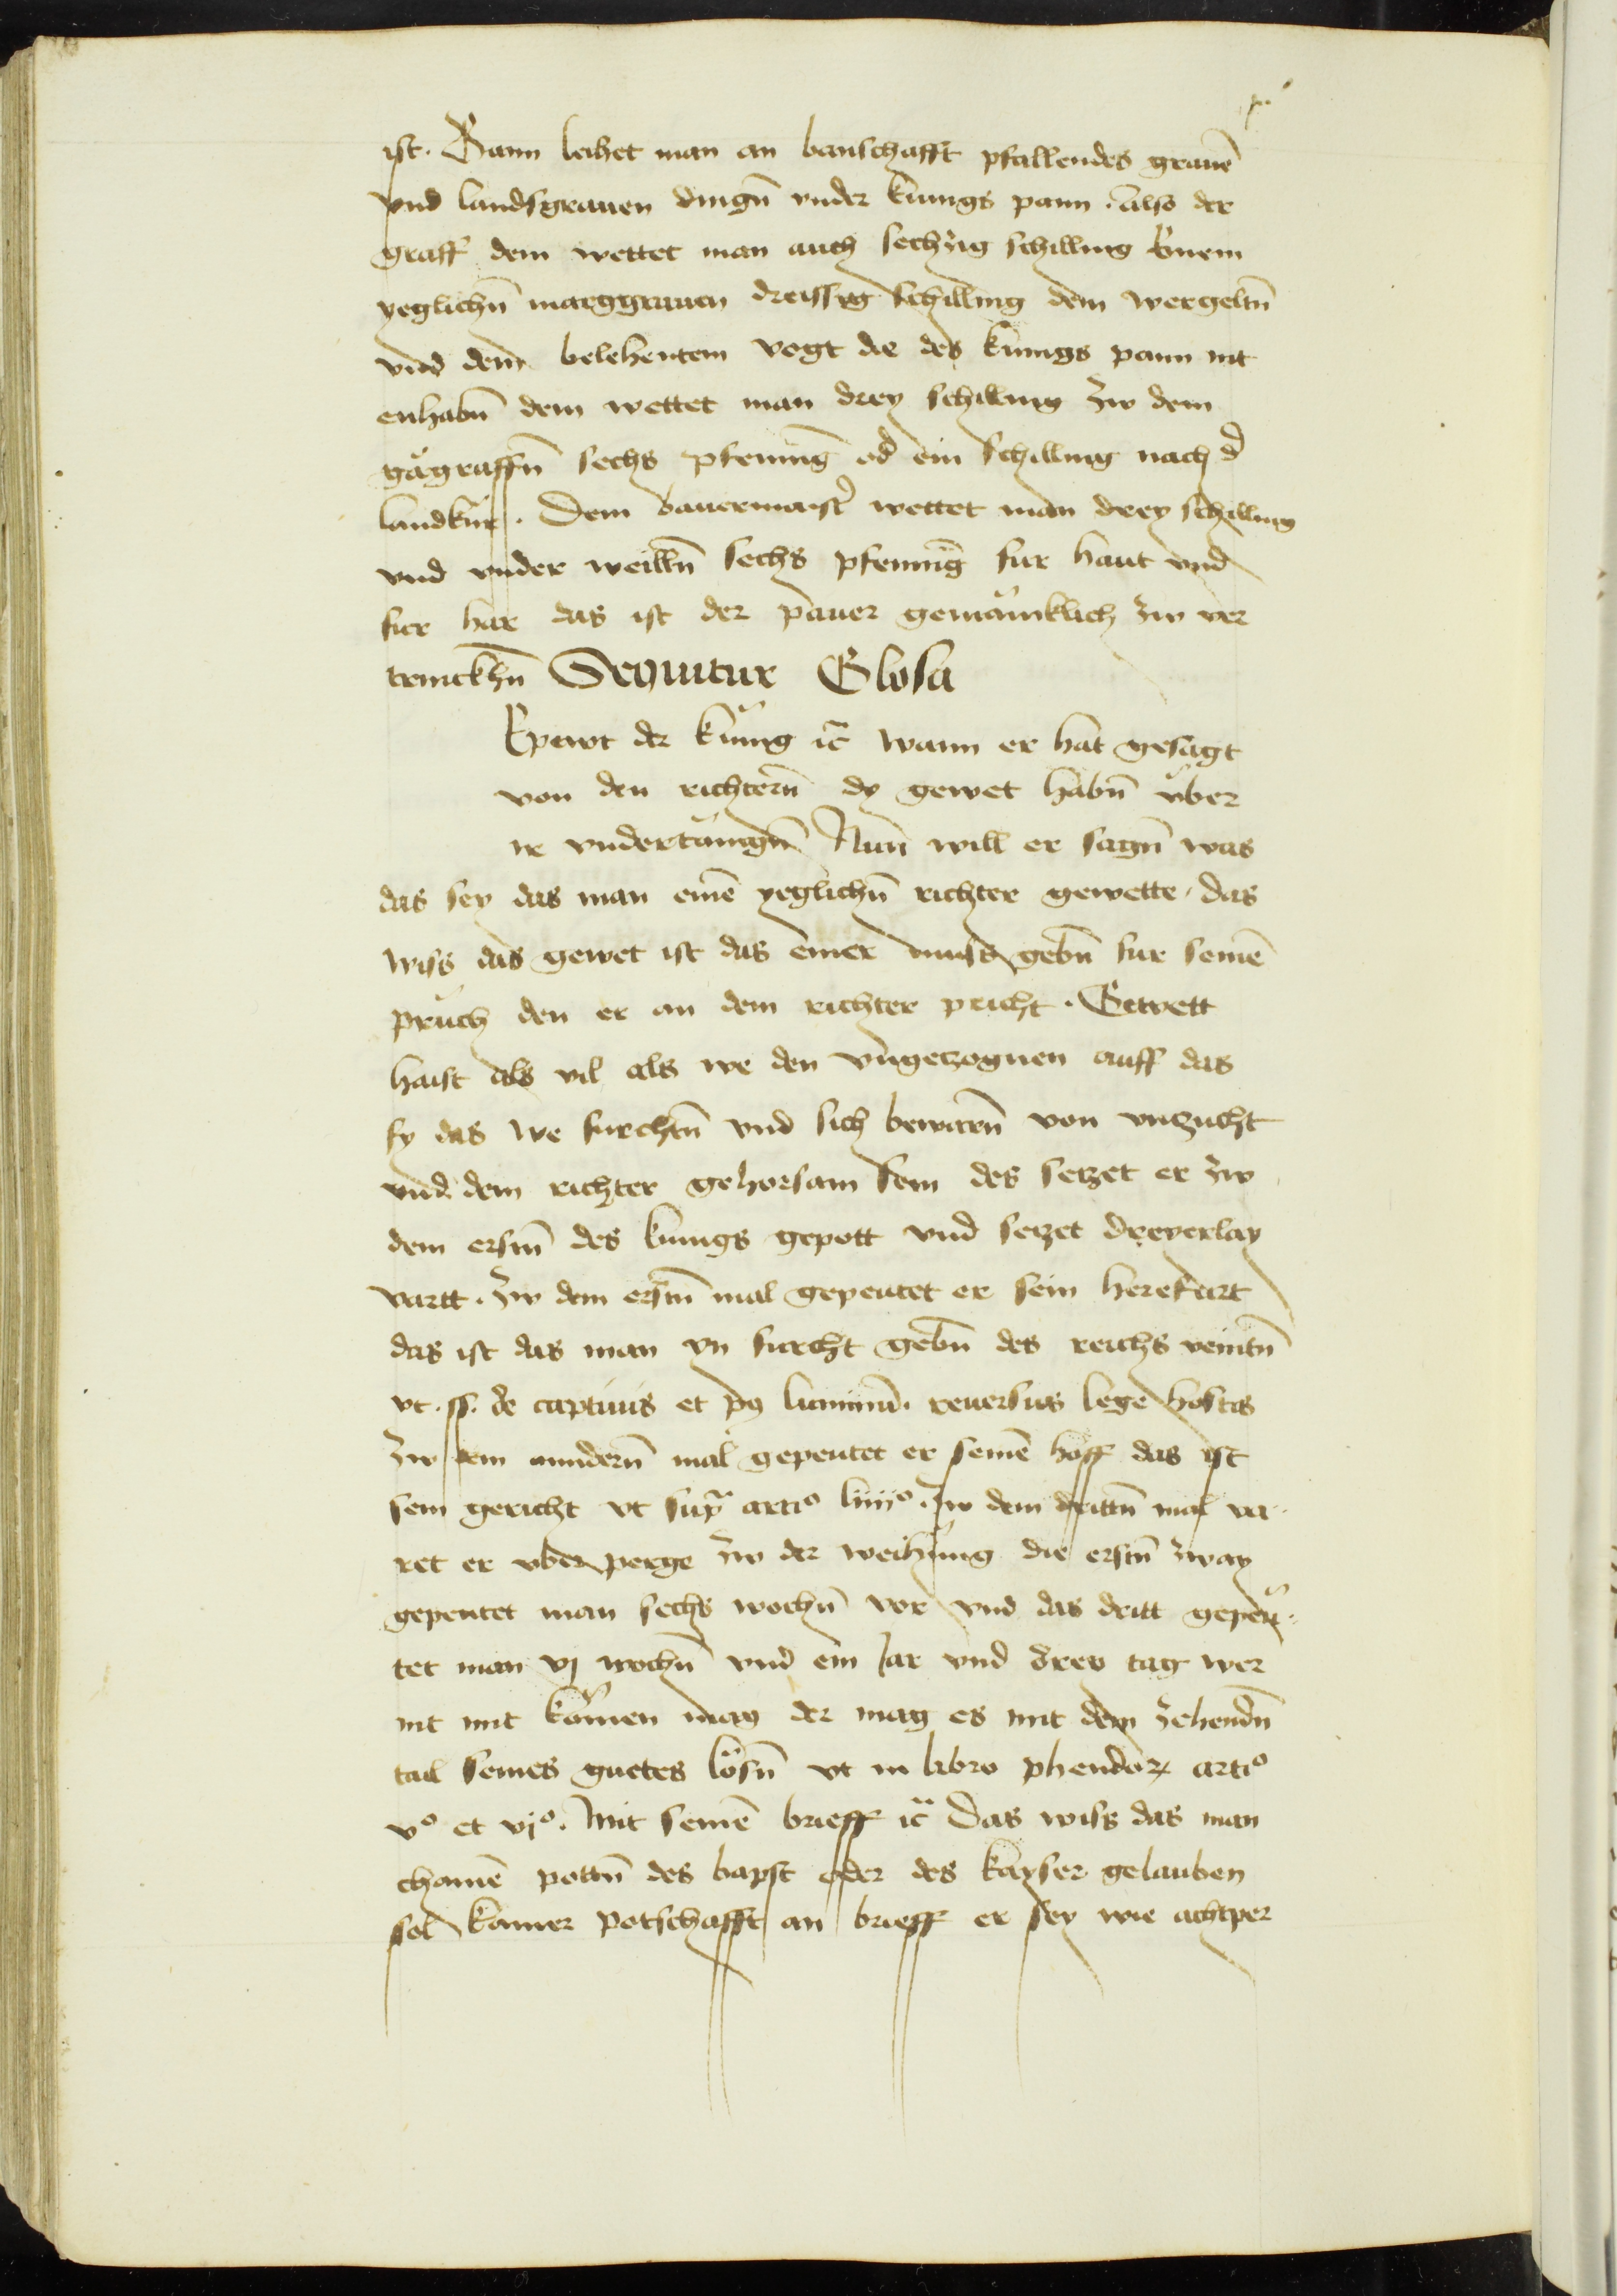 ist. Wann leihet man an banschafft pfallendes grauē
vnd landsgrauen dingn̄ vnder kunigs pann. Also der
graff dem wettet man auch sechzig schilling Einem
yeglichn̄ marggrauen dreissig schilling dem wergeltn̄
vnd dem belehentem vogt die des kunigs pann nit
enhabn̄ dem wettet man drey schilling zw dem
gägraffn̄ sechs pfennīg od ein schilling nach d
landkür. Dem bauermaist wettet man drey schilling
vnd vnder weilln̄ sechs pfennīg fur haut vnd
fur har das ist der pauer gemäincklich zw ver
trinckhn̄ Sequitur Glosa
Epewt der kunig ꝛc̄ wann er hat gesagt
von den richtern̄ dy gewet habn̄ vber
ir vndertänign̄ Nun will er sagn̄ was
das sey das man einē yeglichn̄ richter gewette. das
wiss das gewet ist das einer muss gebn̄ fur seinē
pruch den er an dem richter pricht. Gewett
haist als vil als we den vngezognen auff das
sy das we furchtn̄ vnd sich bewarn̄ von vnzucht
vnd dem richter gehorsam sein des setzet er zw
dem erstn̄ des kunigs gepott vnd setzet dreyerlay
vartt. Zw dem erstn̄ mal gepeutet er sein herefart
das ist das man vn furcht gebn̄ des reichs veintn̄
vt. ff. de captiuis et p9 liminiū. reuersus lege hostis
Zw dem anndern̄ mal gepeutet er seinē hoff das ist
sein gericht vt supra arti⁰ liiij⁰. Zw dem drittn̄ mal va-
ret er vber perge zw der weihung die erstn̄ zway
gepeutet man sechs wochn̄ vor vnd das dritt gepeu-
tet man vj wochn̄ vnd ein Jar vnd drey tag wer
nit mit kömen mag der mag es mit dem zehendn̄
tail seines guetes lösn̄ vt in libro phendoꝝ arti⁰
v⁰ et vj⁰. Mit seinē brieff ꝛc̄ Das wiss das man
chainē pottn̄ des bapst oder des kayser gelauben
sol kainer potschafft an brieff er sey wie achtper